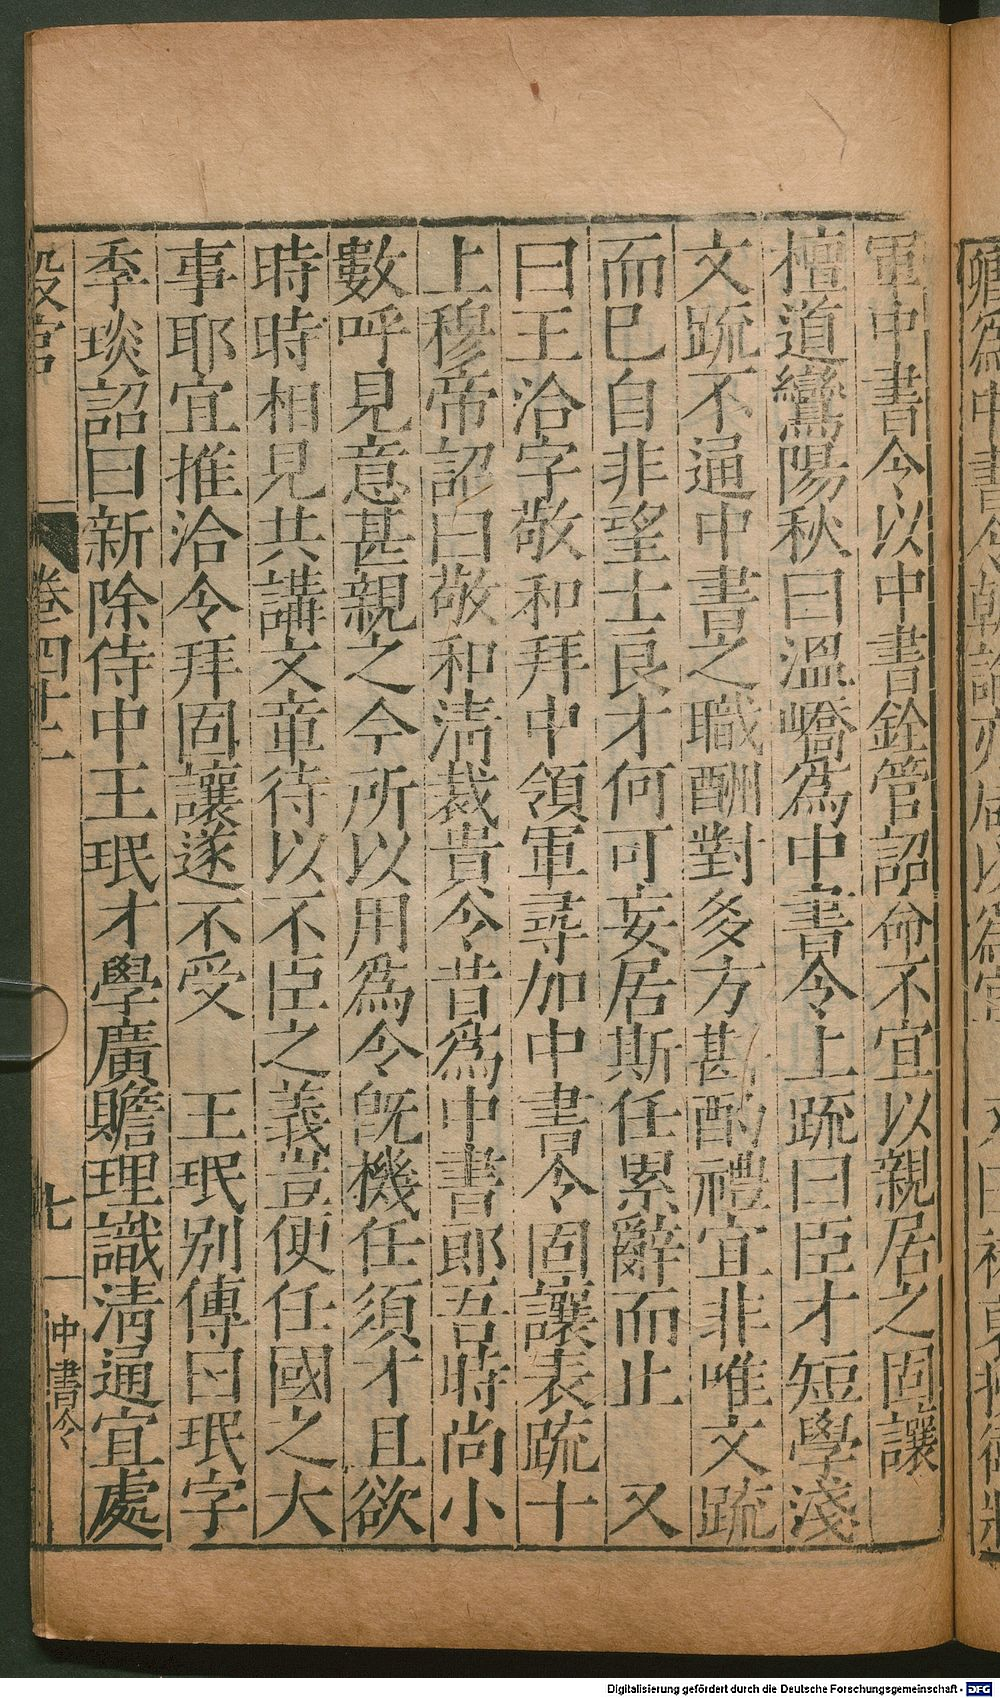 軍中書令以中書銓管詔命不宜以親居之固讓
檀道鸞陽秋曰溫嶠為中書令上疏曰臣才短學淺
文疏不通中書之職酬對多方斟酌禮宜非唯文疏
而巳自非望士良才何可妄居斯任累辭而止　又
曰王洽字敬和拜中領軍尋加中書令固讓表疏十
上穆帝詔曰敬和清裁貴令昔為中書郎吾時尚小
數呼見意甚親之今所以用為令旣機任須才且欲
時時相見共講文章待以不臣之義豈便任國之大
事耶宜推洽令拜固讓遂不受　王珉别傳曰珉字
季琰詔曰新除侍中王珉才學廣贍理識清通宜處
設官
卷四十二
七
中書令
Digitalisierung gefördert durch die Deutsche Forschungsgemeinschaft - DFG